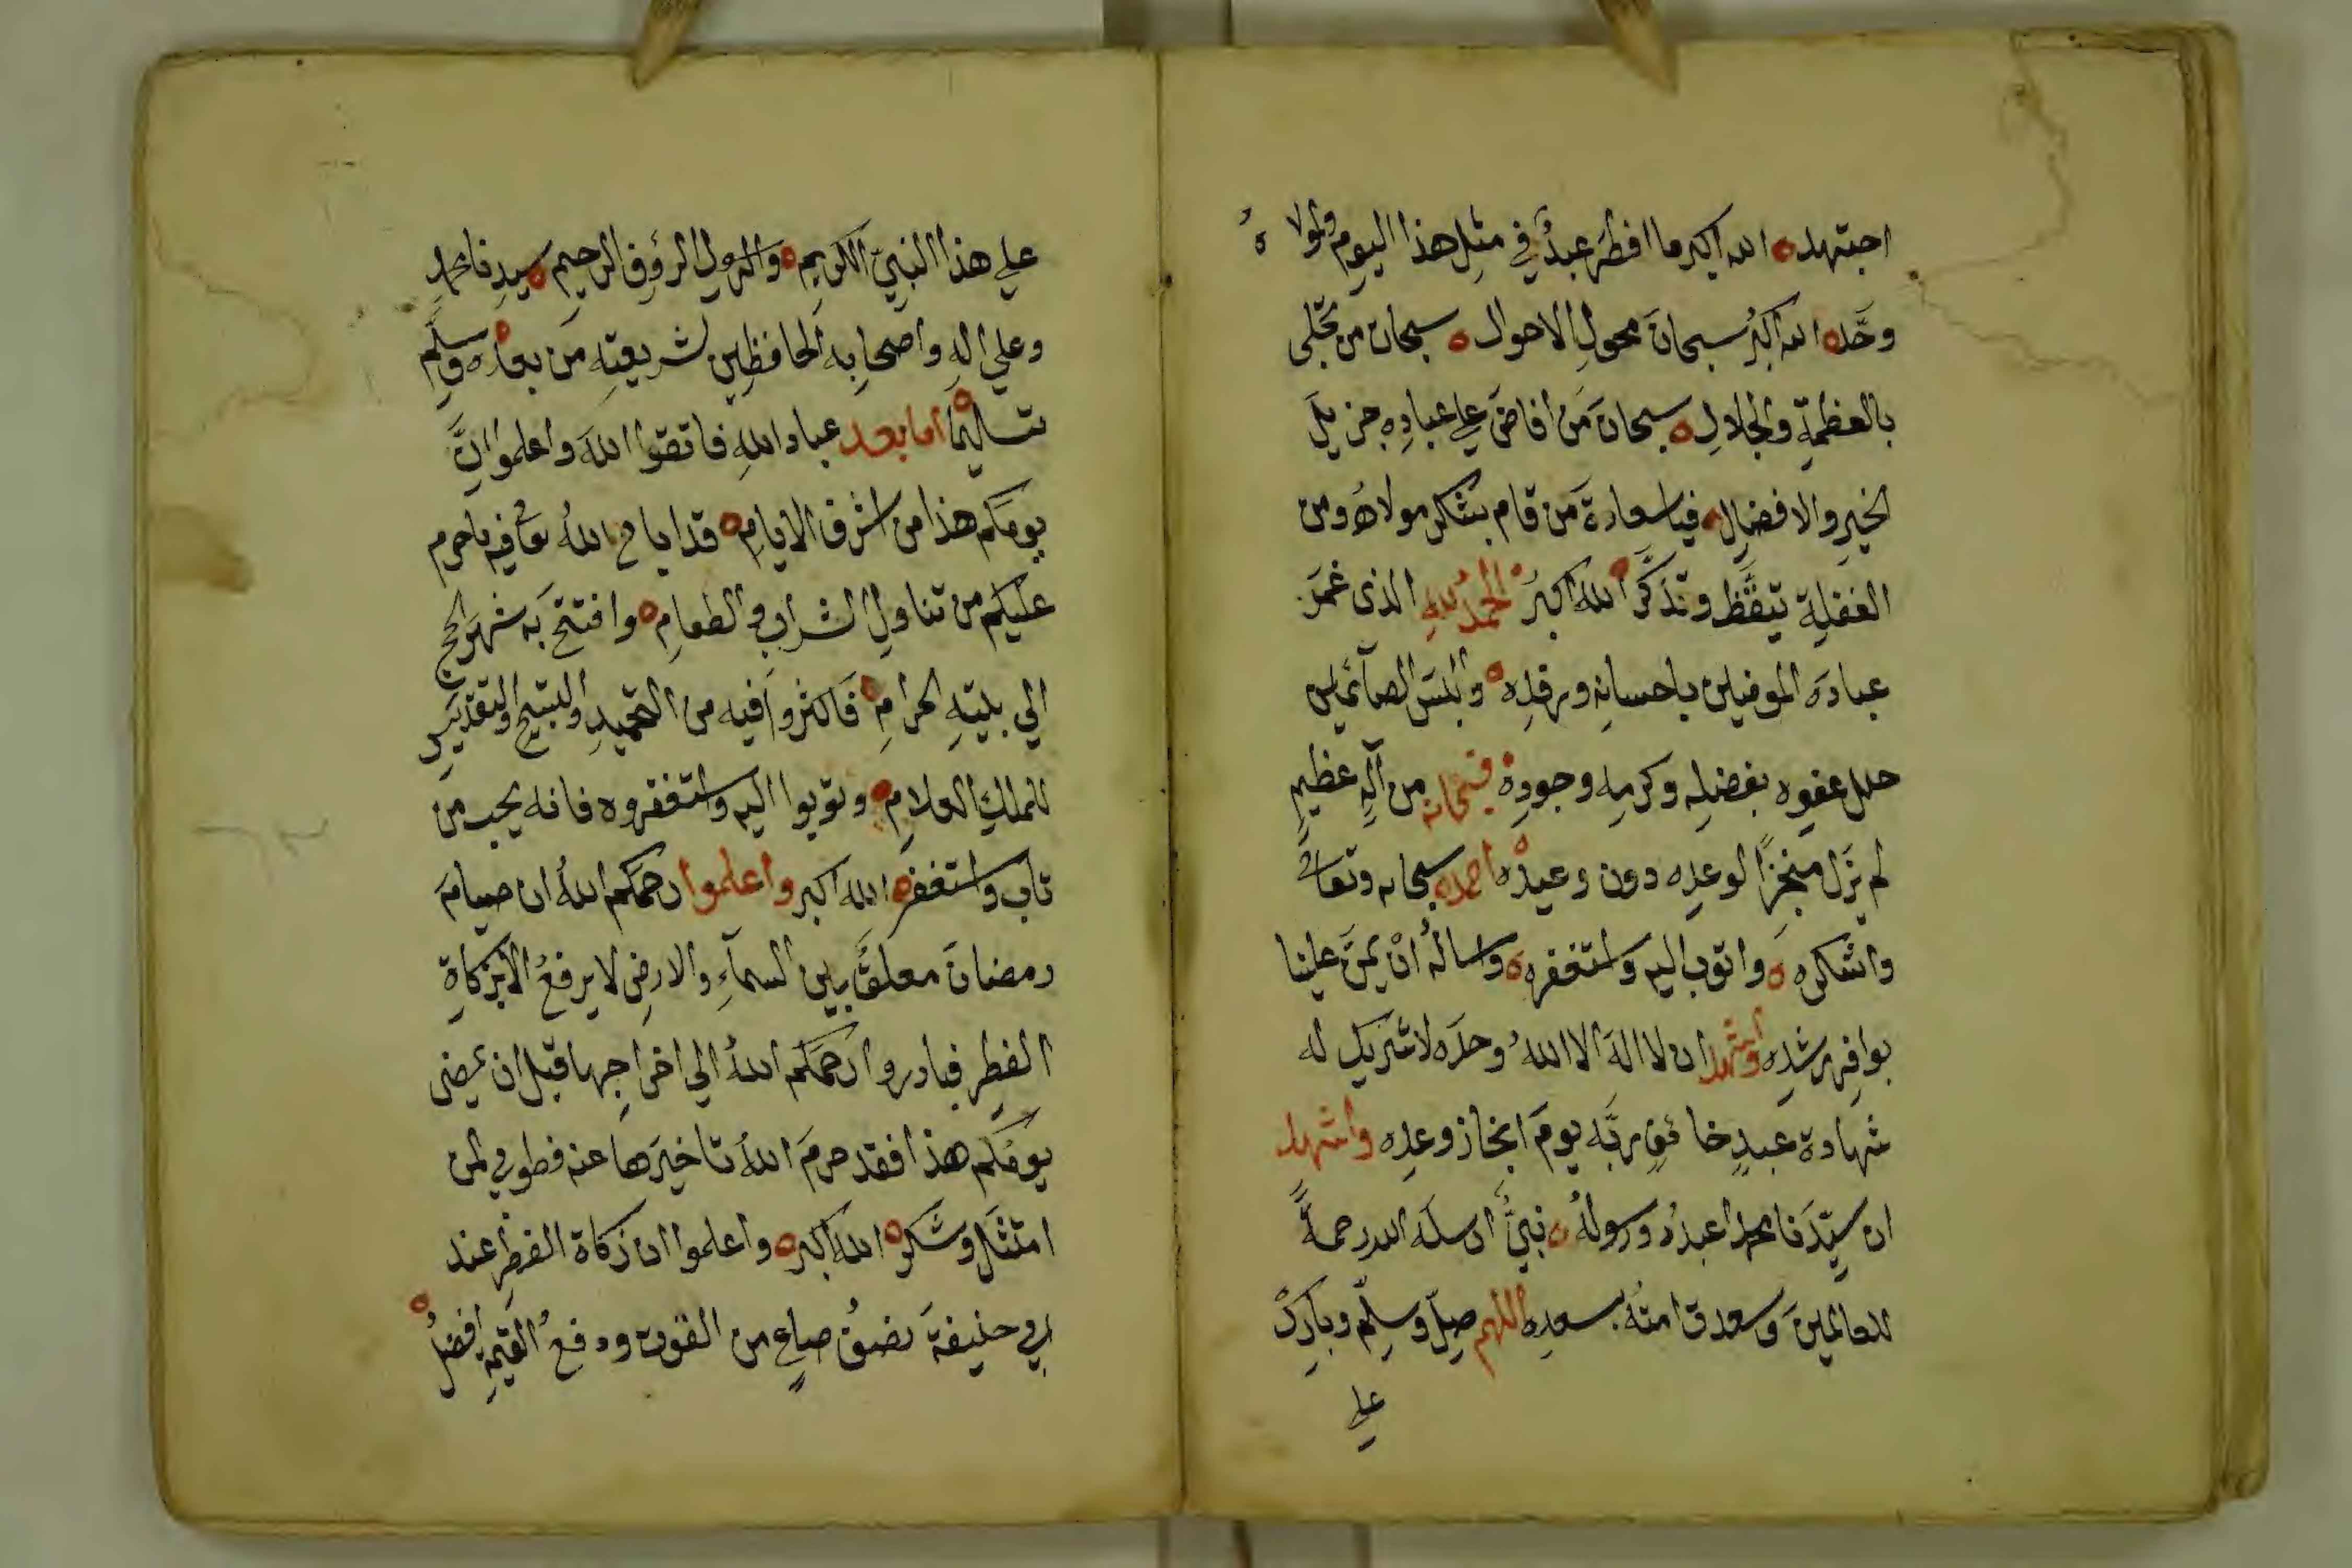 اجتهد ه الله اكبر ما افطر عبدٌ في مثلِ هذا اليوم ولمولاهُ
وحَّد ه الله اكبرُ سبحانَ محولِ الاحوال ه سبحان من تجلى
بالعظمةِ والجلالِ ه سبحانَ مَن افاضَ علي عبادِه جزيلَ
الخيرِ والافضالِ ه فيا سعادةَ مَن قام بشكرِ مولاهُ ومن
الغفلةِ تيقَّظ وتذكَّر الله اكبرُ الحمدُ للهِ الذى غمَرَ
عبادَه المومنين باحسانِه ورفدِه ه والبسَ الصآئمين
حلل عفوِه بفضلِه وكرمِه وجودِه فسبحانه من الٓهٍ عظيمٍ
لم يزَل منجزًا لوعدِه دون وعيدِه احمده سبحانه وتعالى
واشكره ه واتوب اليه واستغفره ه واسالهُ انْ يمنَّ علينا
بوافرِ رشدِه واشهد ان لا الهَ الا اللهُ وحدَه لا شريك له
شهادة عبدٍ خائفٍ ربَّه يومَ انجاز وعدِه واشهد
ان سيّدَنا محمدا عبدُه ورسولهُ ه نبيٌّ ارسلَه الله رحمةً
للعالمينَ وسعدت امتُه بسعدِه اللهم صلِّ وسلِّم وباركْ
علي
علي هذا النبيِّ الكريمِ ه والرسولِ الرؤفِ الرحيمِ ه سيدِنا محمدٍ
وعلي الهِ واصحابِه الحافظين لشريعتِه مَن بعده وسلَّم
تسليمًا اما بعد عبادَ اللهِ فاتقوا اللهَ واعلموا انَّ
يومَكم هذا من اشرفِ الايامِ ه قد اباح اللهُ تعالى فيه ما حرم
عليكم من تناولِ الشرابِ والطعامِ ه وافتتح به شهرَ الحج
الي بيتِه الحرامِ ه فاكثروا فيه من التحميدِ والتسبيحِ والتقديسِ
للملكِ العلامِ ه وتوبوا اليه واستغفروه فانه يحب من
تاب واستغفر ه الله اكبر واعلموا رحمكم اللهُ ان صيامَ
رمضانَ معلقٌ بين السمآءِ والارضِ لا يرفعُ الا بزكاة
الفطرِ فبادروا رحمكم اللهُ الي اخراجِها قبل ان يمضى
يومُكم هذا فقد حرمَ اللهُ تاخيرَها عنه فطوبي لمن
امتثل وشكر ه الله اكبر ه واعلموا ان زكاةَ الفطر عند
ابي حنيفةَ نصفُ صاعٍ من القوت ودفعُ القيمةِ افضلُ ه